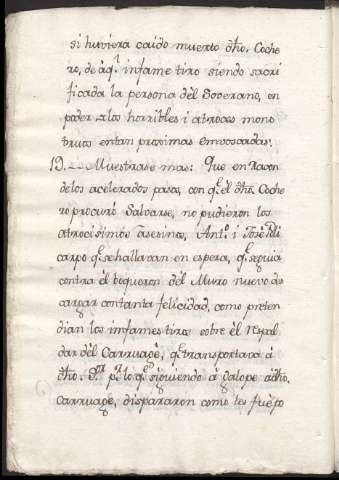 si huviera caido muerto dho. Coche
ro, de aql infame tiro siendo sacri
ficada la persona dél Soverano, en
poder, a los horribles i atroces mons
truos en tan proximas emvoscadas.
19. Muestrase mas: Que en razon
de los acelerados pasos, con q.e el dho. Coche
ro procuró Salvarse, no pudieron los
atrocisimos Asesinos, Ant.o i Josè Poli
carpo q.e se hallavan en espera, q.e seguia
contra él boqueron dél Muro nuevo des
cargar con tanta felicidad, como preten
dian los infames tiros sobre él Respal
dar dél Carruagè, q.e transportava á
dho. S.or p.r lo q.e siguiendo á Galope á dho.
Carruage, dispararon como les fuè po